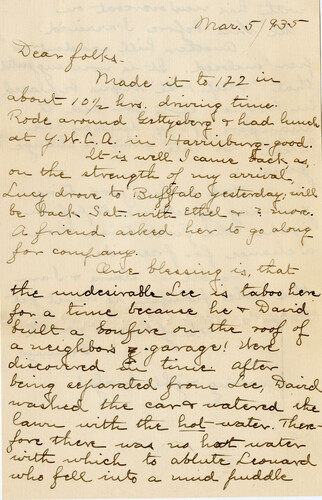 Mar. 5/935
Dear folks.
Made it to 122 in
about 10½ hrs. driving time.
Rode around Gettysberg & had lunch
at Y.W.C.A. in Harrisburg-good.
It is well I came back as,
on the strength of my arrival,
Lucy drove to Buffalo yesterday; will
be back Sat. with Ethel & 2 more.
A friend asked her to go along
for company.
One blessing is, that
the undesirable Lee is taboo here
for a time because he & David
built a bonfire on the roof of
a neighbors garage! Were
discovered in time. After
being separated from Lee, David
washed the car & watered the
lawn with the hot water. There-
fore there was no hot water
with which to ablute Leonard
who fell into a mud puddle